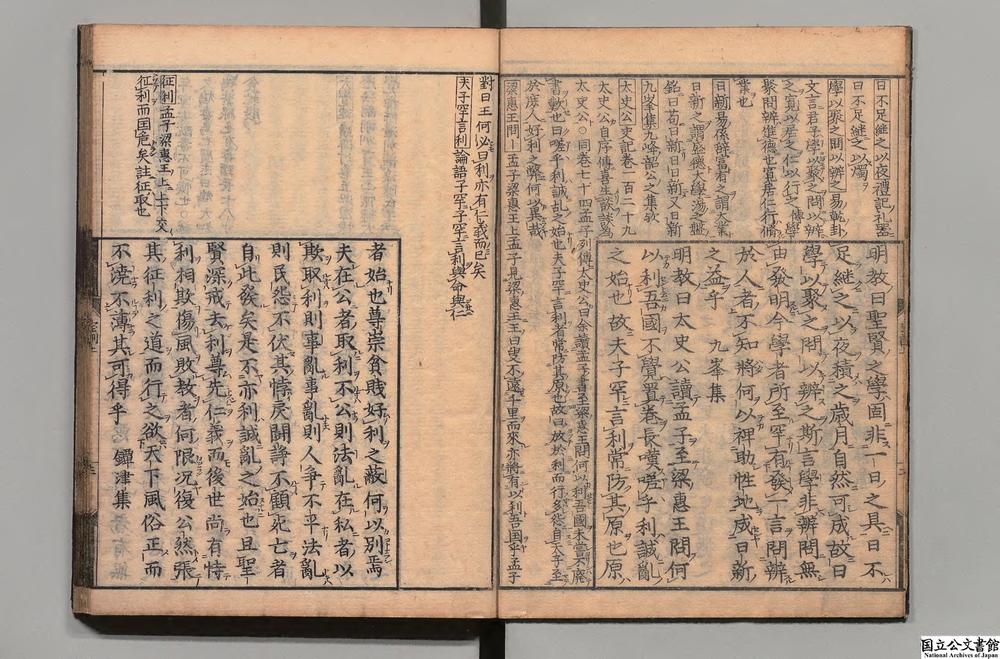 日不足継之以夜禮記礼噐
日不足継之以燭
學以聚之問以辨之易乾卦
文言君子學以聚之問以辨
之寛以居之仁以行之傳學
聚問辨進德也寛居仁行脩
業也
日新易係辞富有之謂大業
日新之謂盛德大學湯之盤
銘曰苟日新日日新又日新
九峯集九峰韶公之集欤
太史公史記卷一百二十九
太史公自序傳喜生談談爲
太史公○同卷七十四孟子列傳太史公曰余讀孟子書至梁惠王問何以利吾國未嘗不廢
書歎也曰嗟乎利誠乱之始也夫子罕言利者常防其原也故曰放於利而行多怨自天子至
於庶人好利之弊何以異哉
梁惠王問｜孟子梁惠王上孟子見梁惠王王曰叟不遠千里而來亦將有以利吾国乎孟子
明教曰聖賢之學固非一日之具日不
足継之以夜積之歳月自然可成故曰
學以聚之問以辨之斯言學非辨問無
由發明今學者所至罕有發一言問辨
於人者不知將何以裨助性地成日新
之益乎 九峯集
明教曰太史公讀孟子至梁惠王問何
以利吾國不覺置卷長嘆嗟乎利誠亂
之始也故夫子罕言利常防其原也原
對曰王何必曰利亦有仁義而已矣
夫子罕言利論語子罕子罕言利與命與仁
征利孟子梁惠王上上下交
征利而国危矣註征取也
者始也尊崇貧賤好利之蔽何以別焉
夫在公者取利不公則法亂在私者以
欺取利則事亂事亂則人爭不平法亂
則民怨不伏其悖戻鬪諍不顧死亡者
自此發矣是不亦利誠亂之始也且聖
賢深戒去利尊先仁義而後世尚有恃
利相欺傷風敗教者何限况復公然張
其征利之道而行之欲天下風俗正而
不澆不薄其可得乎 鐔津集
国立公文書館
National Archives of Japan